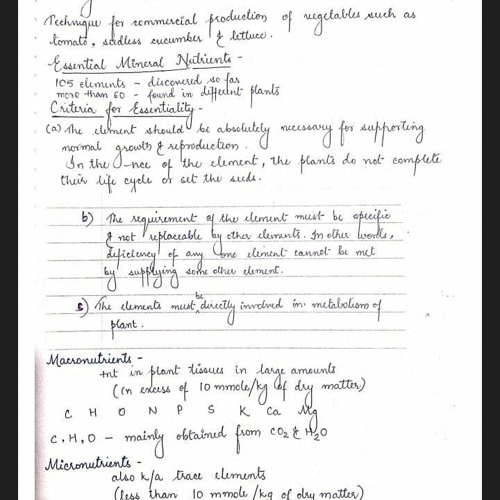 Technique for commercial production of vegetables such as
tomato, seedless cucumber & lettuce.
Essential Mineral Nutrients -
105 elements - discovered so far
more than 60 - found in different plants
Criteria for Essentiality -
(a) The element should be absolutely necessary for supporting
normal growth & reproduction.
In the -nce of the element, the plants do not complete
their life cycle or set the seeds.
b) The requirement of the element must be specific
& not replaceable by other elements. In other words,
deficiency of any one element cannot be met
by supplying some other element.
c) The elements must be directly involved in metabolism of
plant.
Macronutrients -
+nt in plant tissues in large amounts
(in excess of 10 mmole/kg of dry matter)
C H O N P S K Ca Mg
C, H, O - mainly obtained from CO2 & H2O
Micronutrients -
also k/a trace elements
(less than 10 mmole/kg of dry matter)